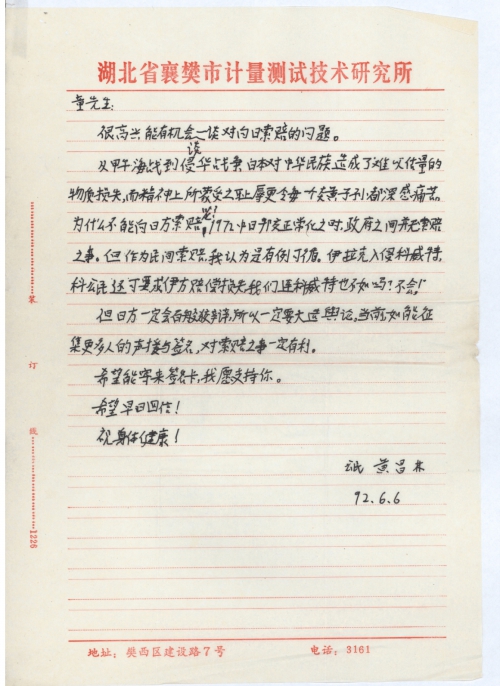 湖北省襄樊市计量测试技术研究所
童先生:
很高兴能有机会谈一谈对向日索赔的问题。
从甲午海战到侵华战争日本对中华民族造成了难以估量的
物质损失,而精神上所蒙受之耻辱更令每一炎黄子孙都深感痛苦。
为什么不能向日方索赔呢?1972中日邦交正常化之时,政府之间并无索赔
之事。但作为民间索赔,我认为是有例可循。伊拉克入侵科威特,
科公民还可要求伊方赔偿损失,我们连科威特也不如吗?不会!
但日方一定会百般狡辩,所以一定要大造舆论,当前如能征
集更多人的声援与签名,对索赔之事一定有利。
希望能寄来签名卡,我愿支持你。
希望早日回信!
祝身体健康!
黄昌林
92.6.6
装
订
线
1226
地址:樊西区建设路7号 电话:3161